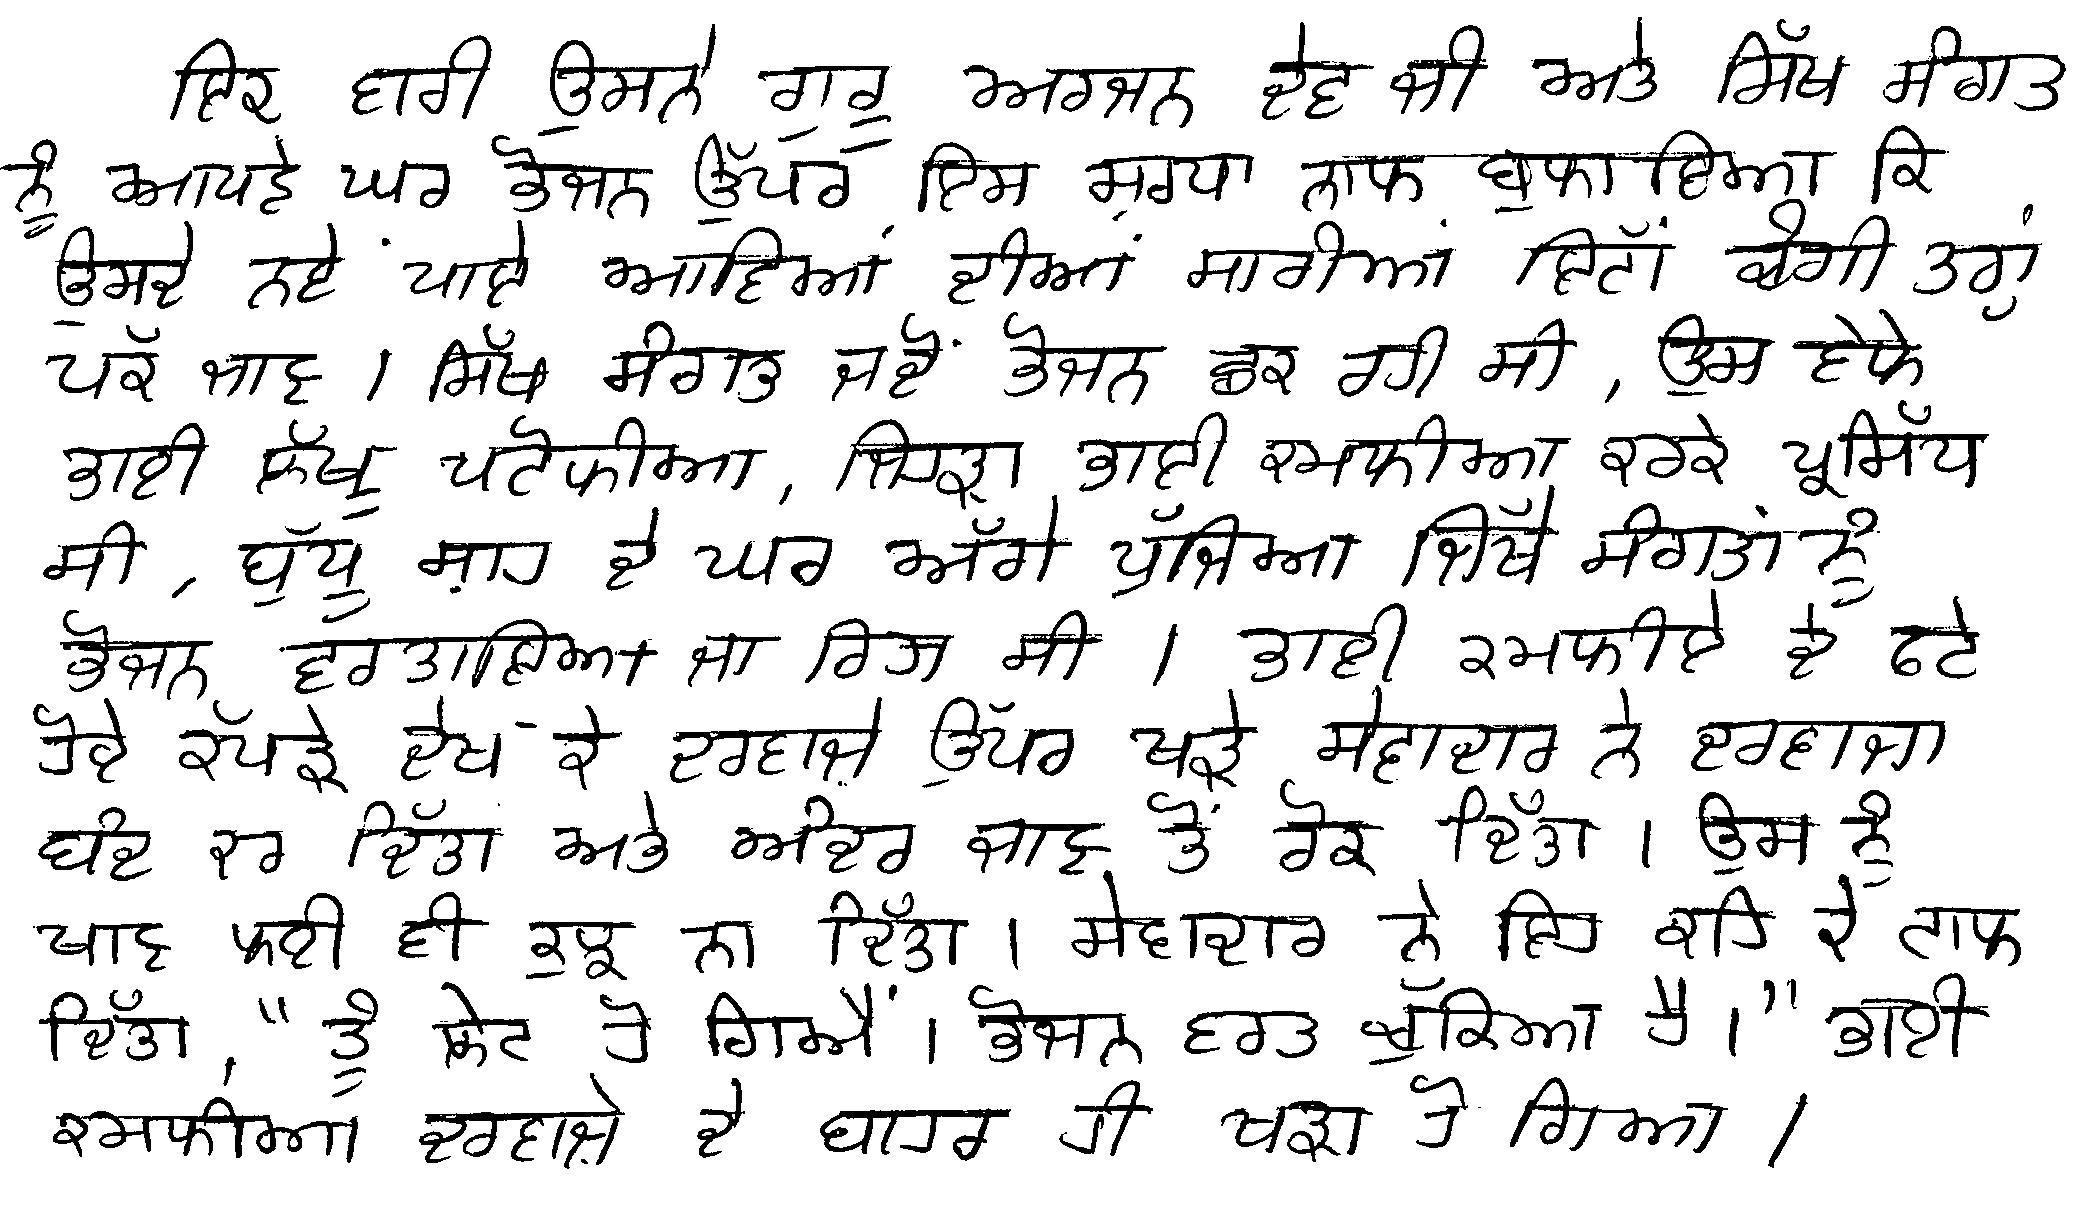 ਇਕ ਵਾਰੀ ਉਸਨੇ ਗੁਰੂ ਅਰਜਨ ਦੇਵ ਜੀ ਅਤੇ ਸਿੱਖ ਸੰਗਤ
ਨੂੰ ਆਪਣੇ ਘਰ ਭੋਜਨ ਉੱਪਰ ਇਸ ਸ਼ਰਧਾ ਨਾਲ ਬੁਲਾਇਆ ਕਿ
ਉਸਦੇ ਨਵੇਂ ਪਾਏ ਆਵਿਆਂ ਦੀਆਂ ਸਾਰੀਆਂ ਇਟਾਂ ਚੰਗੀ ਤਰ੍ਹਾਂ
ਪਕ ਜਾਣ । ਸਿੱਖ ਸੰਗਤ ਜਦੋਂ ਭੋਜਨ ਛਕ ਰਹੀ ਸੀ , ਉਸ ਵੇਲੇ
ਭਾਈ ਲੱਖੂ ਪਟੋਲੀਆ , ਜਿਹੜਾ ਭਾਈ ਕਮਲੀਆ ਕਰਕੇ ਪ੍ਰਸਿੱਧ
ਸੀ , ਬੁੱਧੂ ਸ਼ਾਹ ਦੇ ਘਰ ਅੱਗੇ ਪੁੱਜਿਆ ਜਿੱਥੇ ਸੰਗਤਾਂ ਨੂੰ
ਭੋਜਨ ਵਰਤਾਇਆ ਜਾ ਰਿਹਾ ਸੀ । ਭਾਈ ਕਮਲੀਏ ਦੇ ਫਟੇ
ਹੋਏ ਕੱਪੜੇ ਦੇਖ ਕੇ ਦਰਵਾਜ਼ੇ ਉੱਪਰ ਖੜੇ ਸੇਵਾਦਾਰ ਨੇ ਦਰਵਾਜਾ
ਬੰਦ ਕਰ ਦਿੱਤਾ ਅਤੇ ਅੰਦਰ ਜਾਣ ਤੋਂ ਰੋਕ ਦਿੱਤਾ । ਉਸ ਨੂੰ
ਖਾਣ ਲਈ ਵੀ ਕੁਝ ਨਾ ਦਿੱਤਾ । ਸੇਵਾਦਾਰ ਨੇ ਇਹ ਕਹਿ ਕੇ ਟਾਲ
ਦਿੱਤਾ , " ਤੂੰ ਲੇਟ ਹੋ ਗਿਐਂ । ਭੋਜਨ ਵਰਤ ਚੁੱਕਿਆ ਹੈ । " ਭਾਈ
ਕਮਲੀਆ ਦਰਵਾਜ਼ੇ ਦੇ ਬਾਹਰ ਹੀ ਖੜਾ ਹੋ ਗਿਆ ।